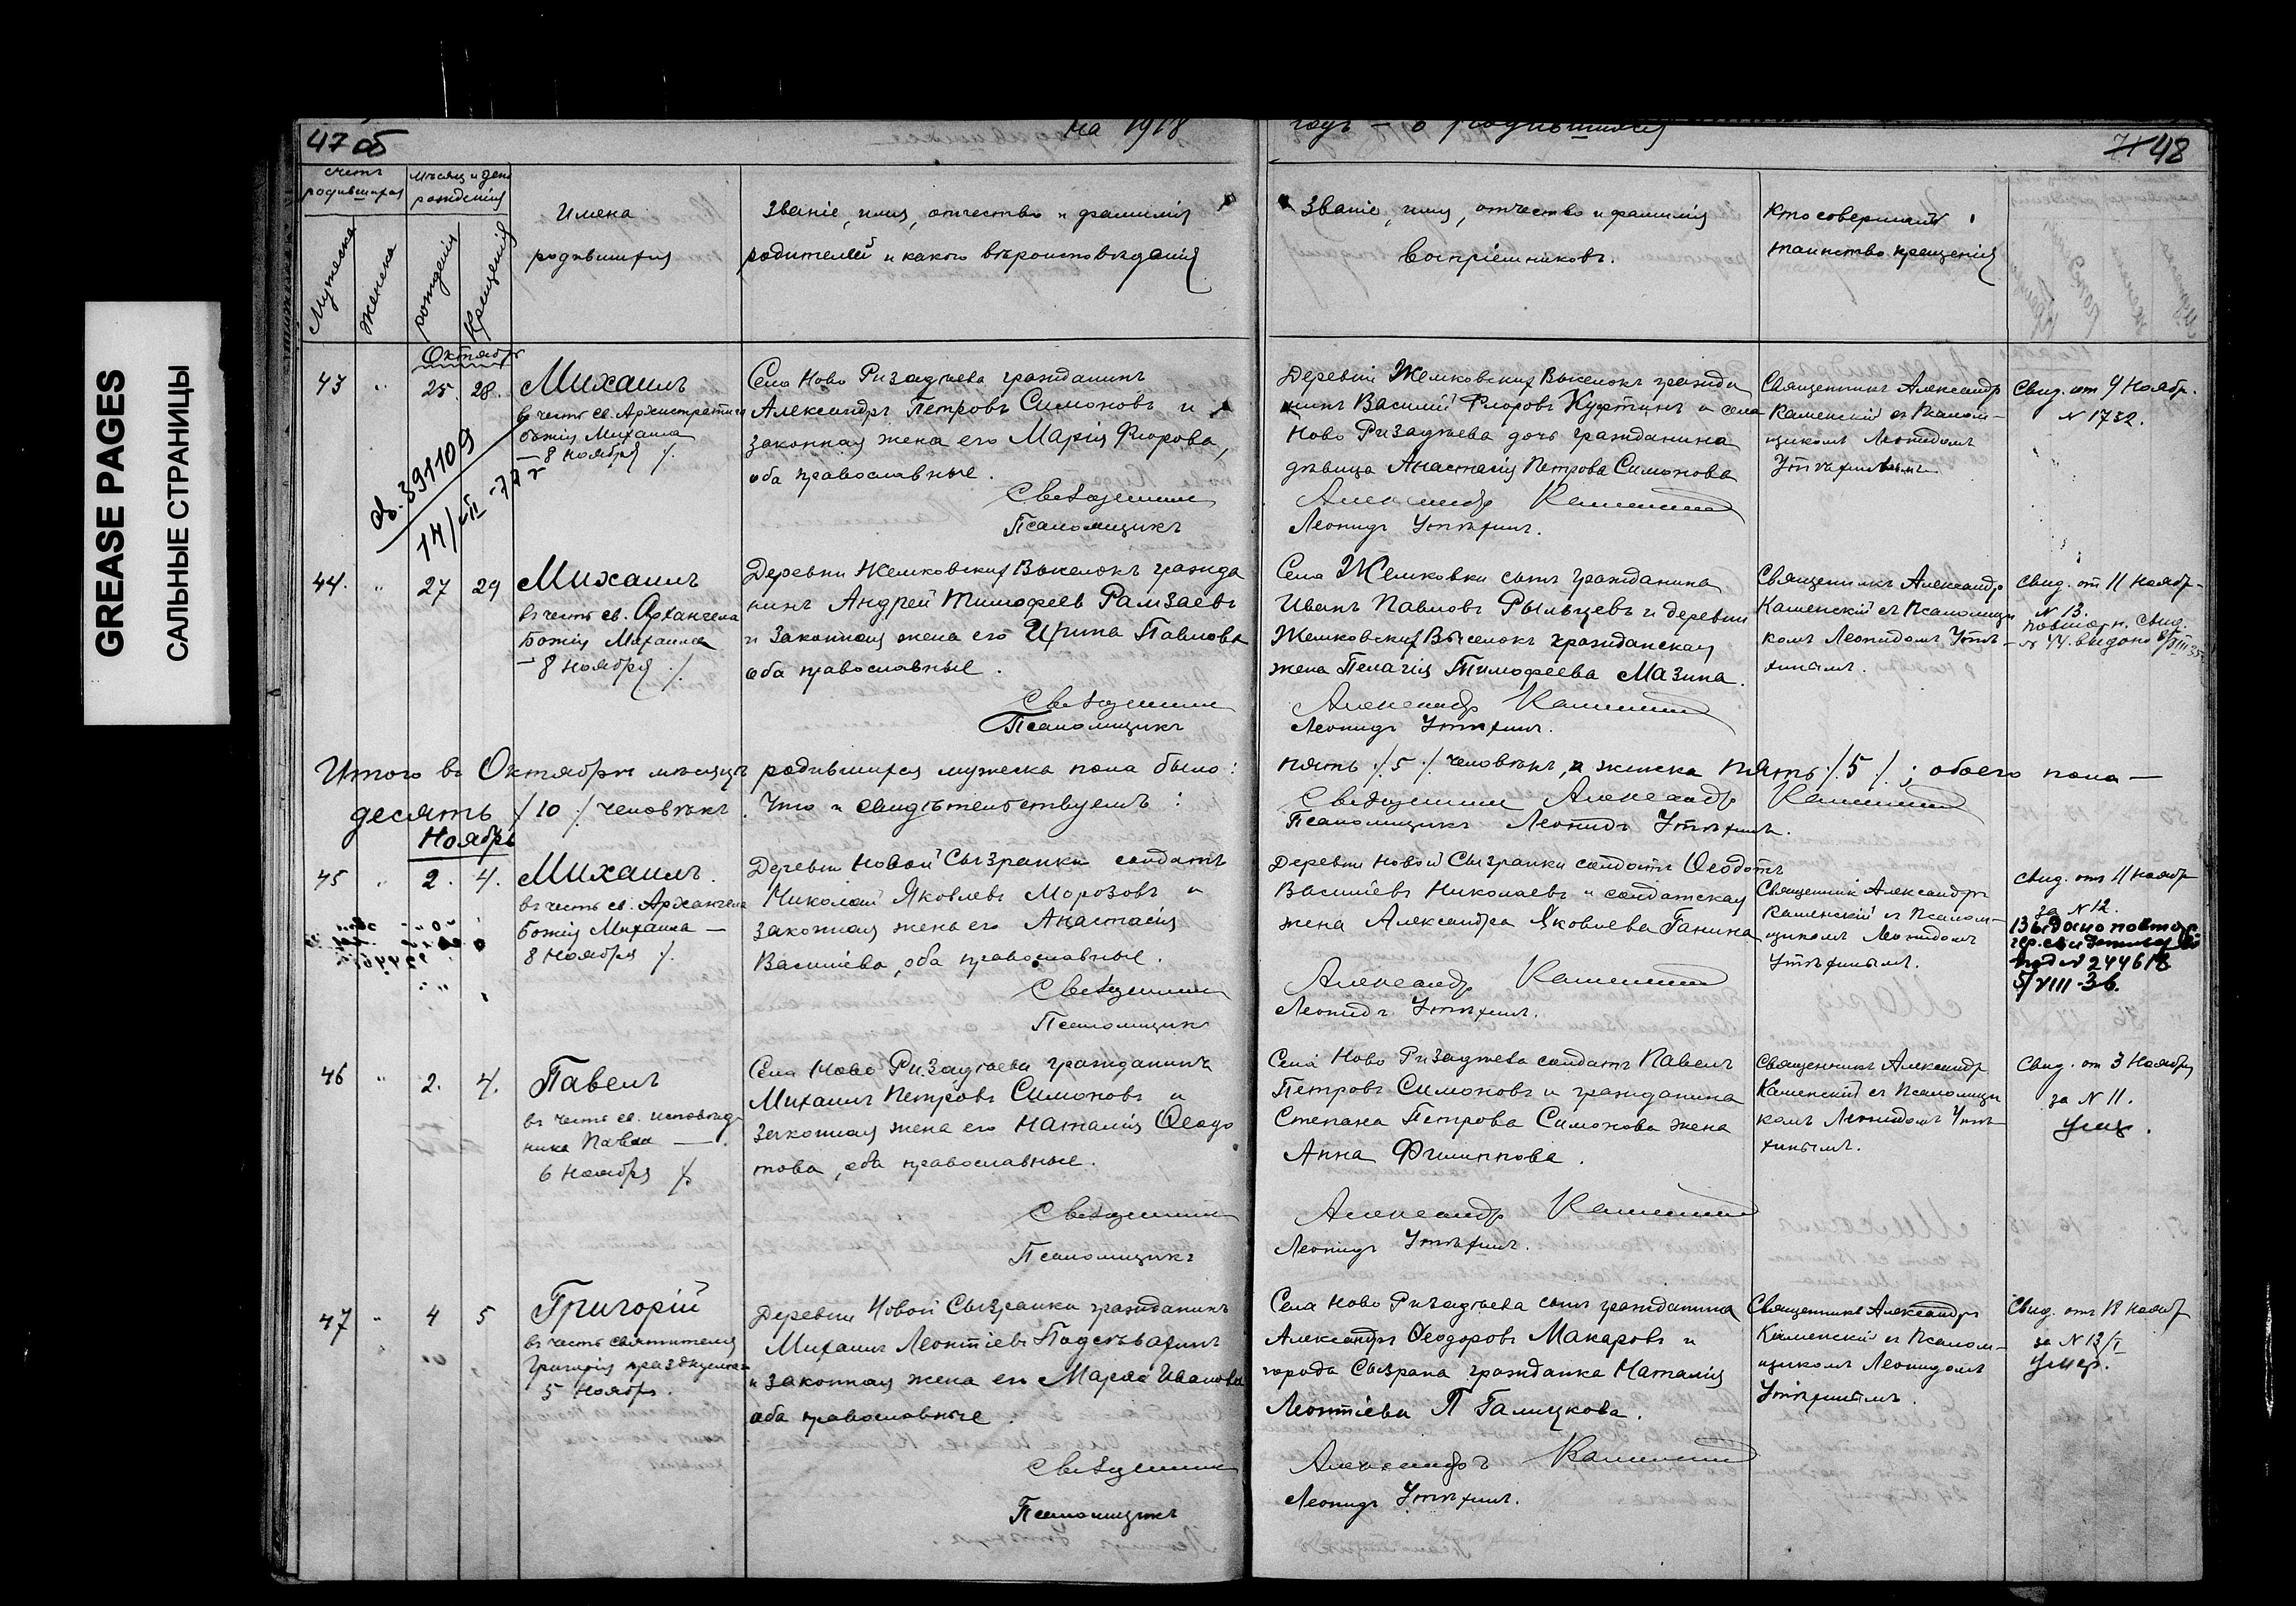 GREASE PAGES
САЛЬНЫЕ СТРАНИЦЫ
47 об
на 1918
годъ – о родившихся
71 48
счетъ родившихся
Мужеска
Женска
мѣсяц и день рожденія
рожденія
Крещенія
Имена
родившихся
Званіе, имя, отчество и фамилія
родителей и какого вѣроисповѣданія
Званіе, имя, отчество и фамилія
воспріемниковъ.
Кто совершилъ
таинство крещенія
Октябрь
43 " 25. 28.
Михаилъ
въ честь св. Архистратига
Божія Михаила
– 8 Ноября /.
391109
14/VII -72 г
Села Ново Ризадѣева гражданинъ
Александръ Петровъ Симоновъ и
законная жена его Марія Флорова,
оба православные.
Священникъ
Псаломщикъ
Деревни Жемковскихъ Выселокъ гражда
нинъ Василій Флоровъ Куфтинъ и села
Ново Ризадѣева дочь гражданина
дѣвица Анастасія Петрова Симонова
Александр Каменскій
Леонидъ Утѣхинъ.
Священникъ Александр
Каменскій съ Псалом–
щикомъ Леонидомъ
Утѣхинымъ
Свид. от 9 Ноябр.
N 1732.
44. " 27 29
Михаилъ
въ честь св. Архангела
Божія Михаила
– 8 Ноября /.
Деревни Жемковских Выселокъ гражда
нинъ Андрей Тимофеев Рамзаевъ
и законная жена его Ирина Павлова
оба православные.
Священникъ
Псаломщикъ
Села Жемковки сынъ гражданина
Иванъ Павловъ Рыльцевъ и деревни
Жемковских Выселокъ гражданская
жена Пелагія Тимофеева Мазина.
Александр Каменскій
Леонидъ Утѣхинъ.
Священникъ Александр
Каменскій съ Псаломщи
комъ Леонидомъ Утѣ–
хинымъ.
Свид. от 11 Ноябр–
N 13.
повторн. свид.
N 44. выдано 8/VIII 35
Итого въ Октябрѣ мѣсяцѣ родившихся мужеска пола было:
пять /.5./ человѣкъ, а женска пять /.5./; обоего пола –
десять /10./ человѣкъ. Что и свидѣтельствуемъ:
Священникъ Александр Каменскій
Псаломщикъ Леонидъ Утѣхинъ.
Ноябрь
45 " 2. 4.
Михаилъ.
въ честь св. Архангела
Божія Михаила –
8 Ноября /.
Деревни Новой Сызранки солдатъ
Николай Яковлевъ Морозовъ и
законная жена его Анастасія
Василіева, оба православные.
Священникъ
Псаломщикъ
Деревни Новой Сызранки солдатъ Ѳеодотъ
Василіевъ Николаевъ и солдатская
жена Александра Яковлева Ганина
Александр Каменскій
Леонидъ Утѣхинъ.
Священник Александръ
Каменскій съ Псалом–
щикомъ Леонидомъ
Утѣхинымъ.
Свид. отъ 4 Ноябр
за N 12.
под N 244618
5/VIII-36.
46 " 2. 4.
Павелъ
въ честь св. исповѣд
ника Павла –
6 Ноября /.
Села Ново Ризадѣева гражданинъ
Михаилъ Петровъ Симоновъ и
законная жена его Наталія Ѳеодо
това, оба православные.
Священникъ
Псаломщикъ
Села Ново Ризадѣева солдатъ Павелъ
Петровъ Симоновъ и гражданина
Степана Петрова Симонова жена
Анна Филиппова.
Александр Каменскій
Леонидъ Утѣхинъ.
Священникъ Александр
Каменскій съ Псаломщи
комъ Леонидомъ Утѣ–
хинымъ.
Свид. от 3 Ноября
за N 11.
47 " 4 5
Григорій
въ честь святителя
Григорія празднуемаго
5 Ноября.
Деревни Новой Сызранки гражданинъ
Михаилъ Леонтіевъ Подсѣвахинъ
и законная жена его Марѳа Иванова
оба православные.
Священникъ
Псаломщикъ
Села Ново Ризадѣева сынъ гражданина
Александръ Ѳеодоровъ Макаровъ и
города Сызрана гражданка Наталія
Леонтіева П Галицкова.
Александръ Каменскій
Леонидъ Утѣхинъ.
Священникъ Александръ
Каменскій съ Псалом–
щикомъ Леонидомъ
Утѣхинымъ.
Свид. отъ 18 Ноябр
за N 13/I
умер.